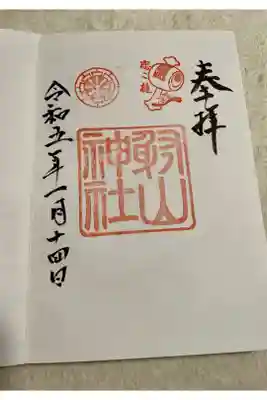 奉拝
恋こ槌
射山
神社
令和五年一月十四日